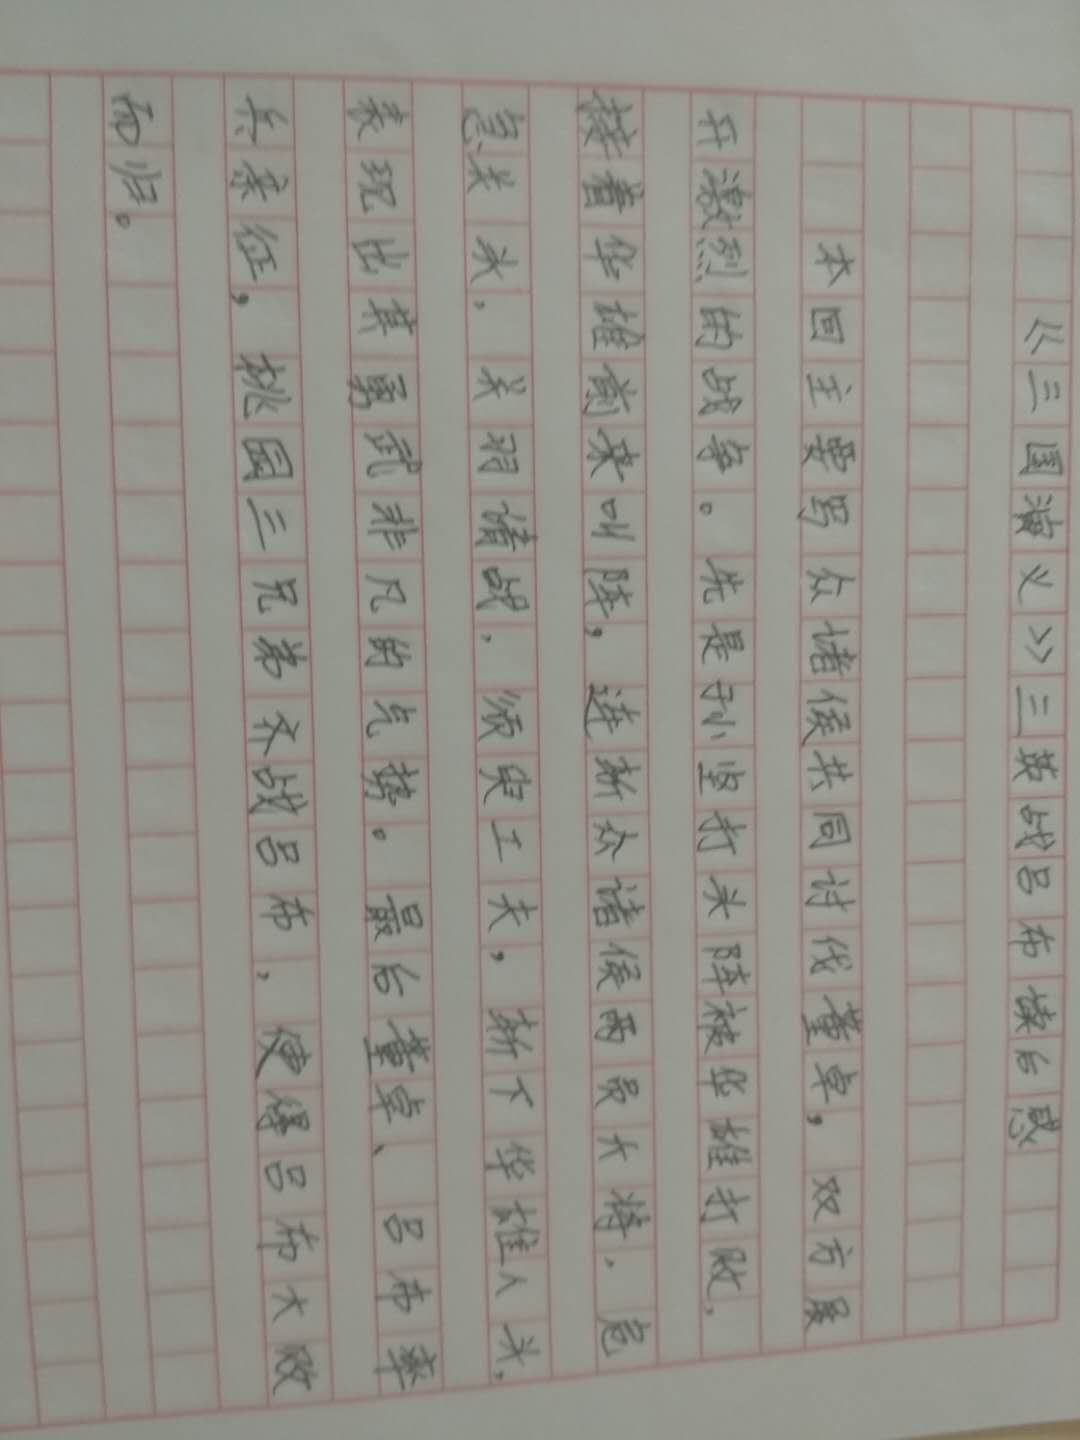 《三国演义》三英战吕布读后感
本回主要写众诸侯共同讨伐董卓，双方展
开激烈的战争。先是孙坚打头阵被华雄打败，
接着华雄前来叫阵，连斩众诸侯两员大将，危
急关头，关羽请战，须臾工夫，斩下华雄人头，
表现出其勇武非凡的气势。最后董卓、吕布率
兵亲征，桃园三兄弟齐战吕布，使得吕布大败
而归。